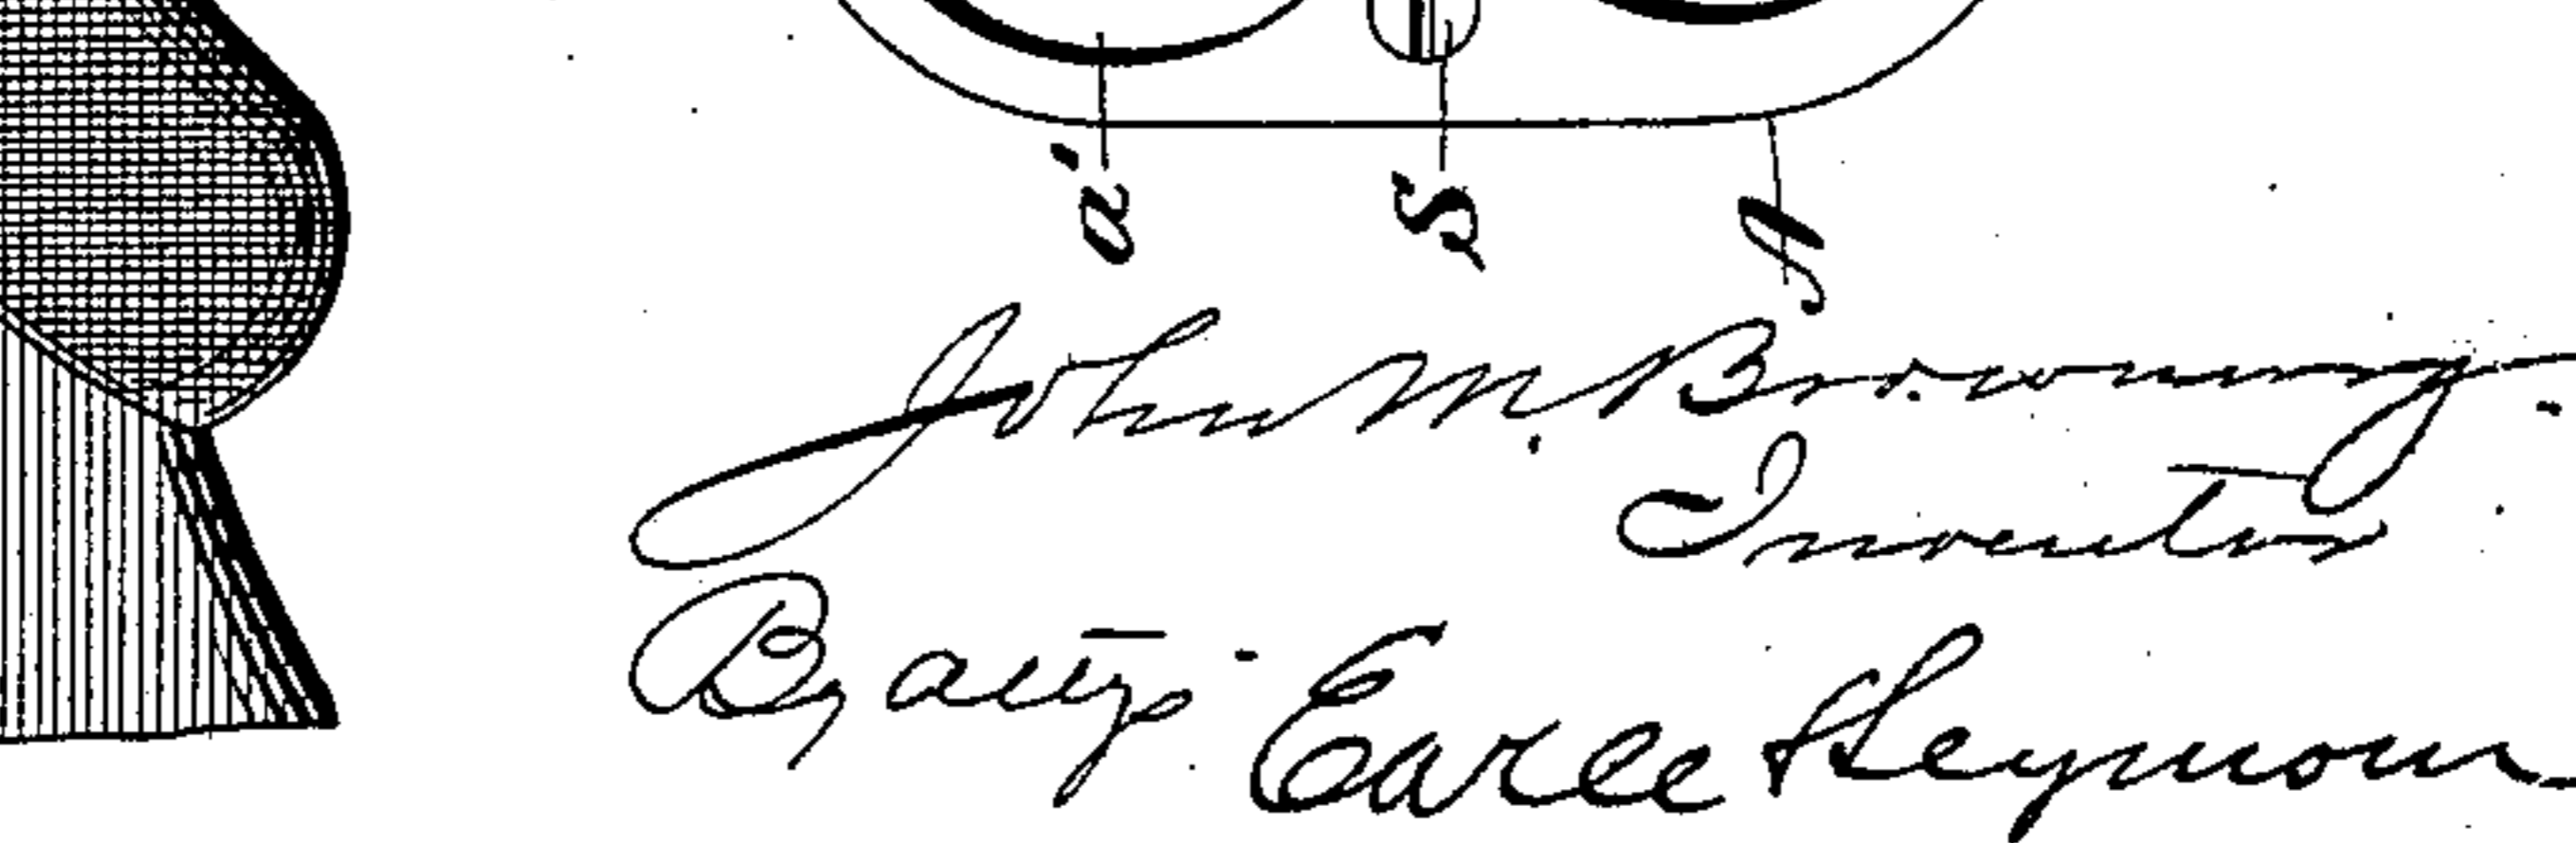 a' s f
John M. Browning.
Inventor
By atty. Earle Seymour